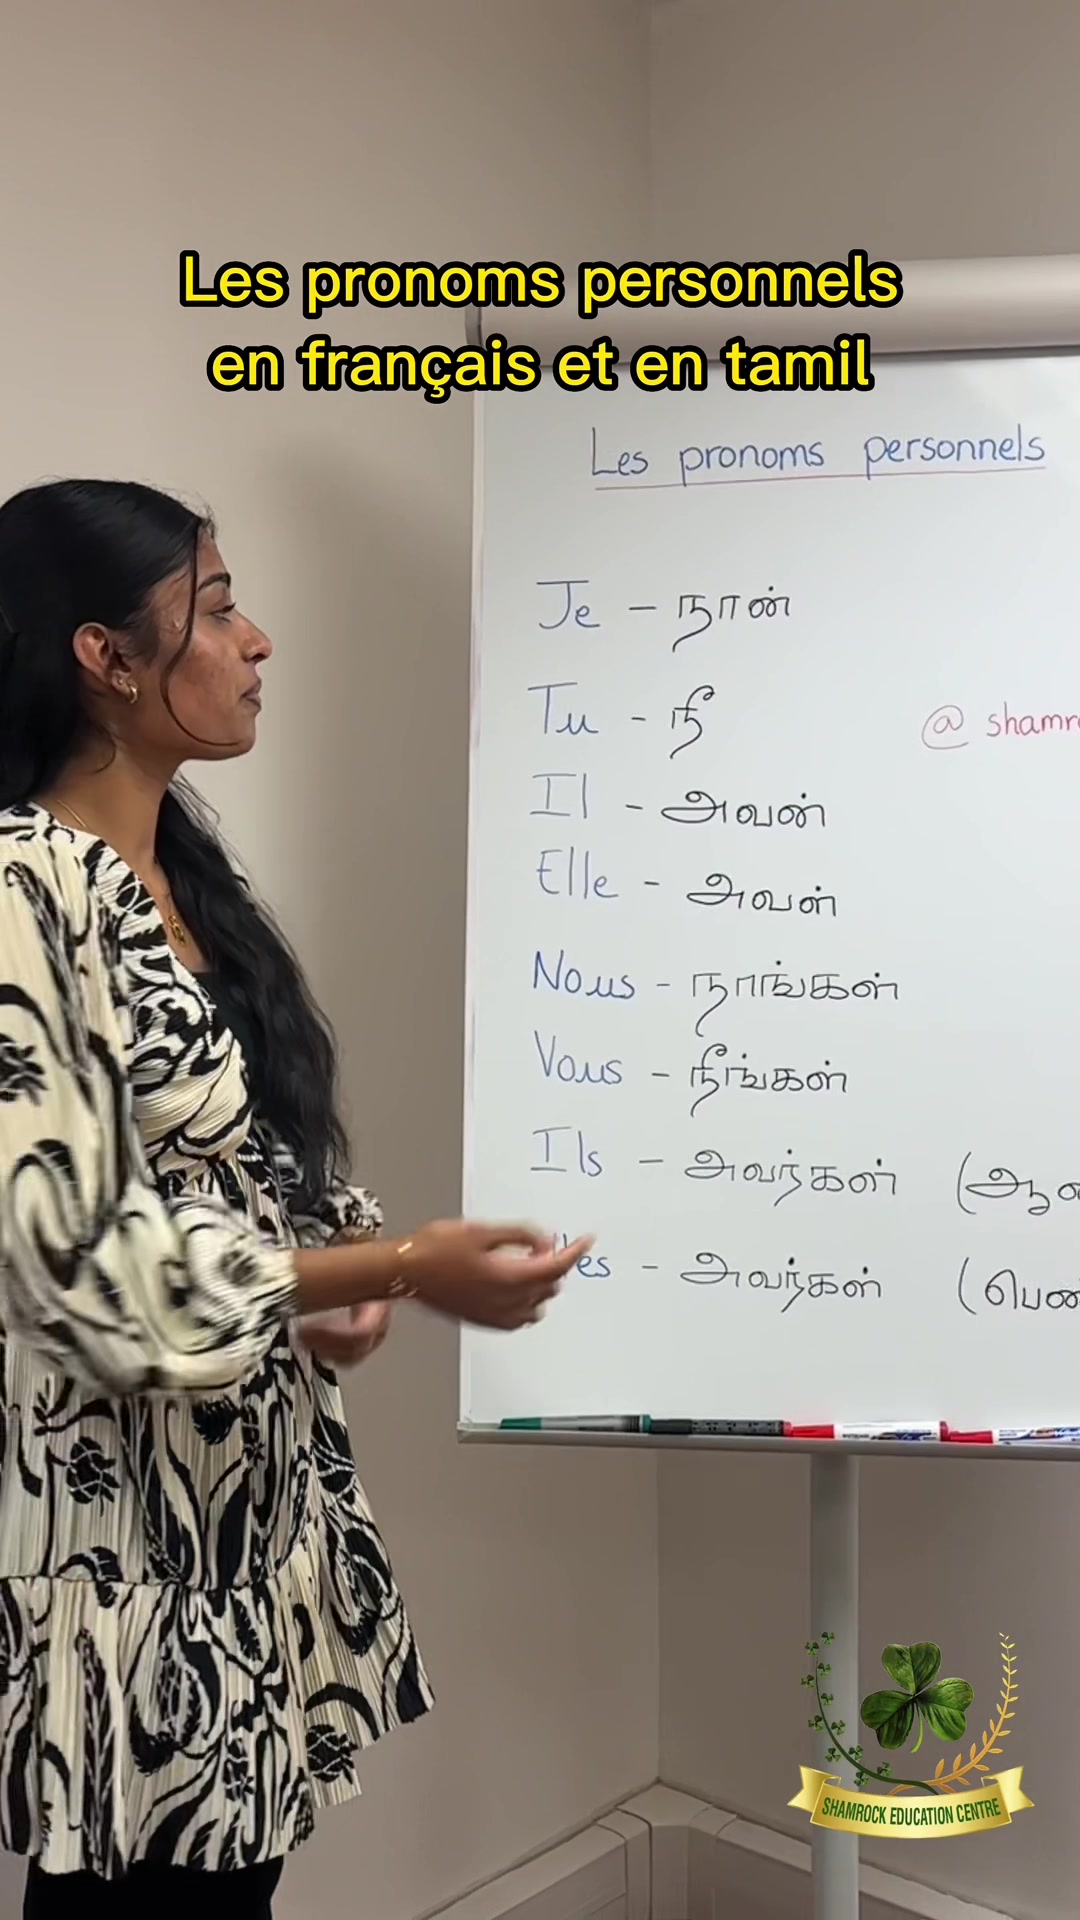 Les pronoms personnels
en français et en tamil
Les pronoms personnels
Je – நான்
Tu - நீ
@ shamr
Il - அவன்
Elle - அவள்
Nous - நாங்கள்
Vous - நீங்கள்
Ils – அவர்கள் (ஆ
lles - அவர்கள் (பெண
SHAMROCK EDUCATION CENTRE